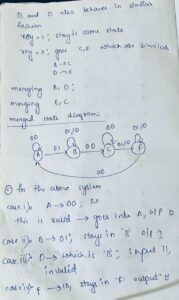 B and D also behaves in similar
fashion
xy=1; stay in same state
xy=0; goes C,E which are similar
B→C
D→E
merging B, D;
merging E, C.
merged state diagram:
00 01,10 00 01,10
00 01 00
A B C F
00
c) for the above system
case i) A → 00,
this is valid → goes into A, O/P 0
case ii) B → 01; stays in 'B' O/P 1
case iii) D → which is 'B'; input 11,
invalid
case iv) F → 10; stay in 'F' output 0